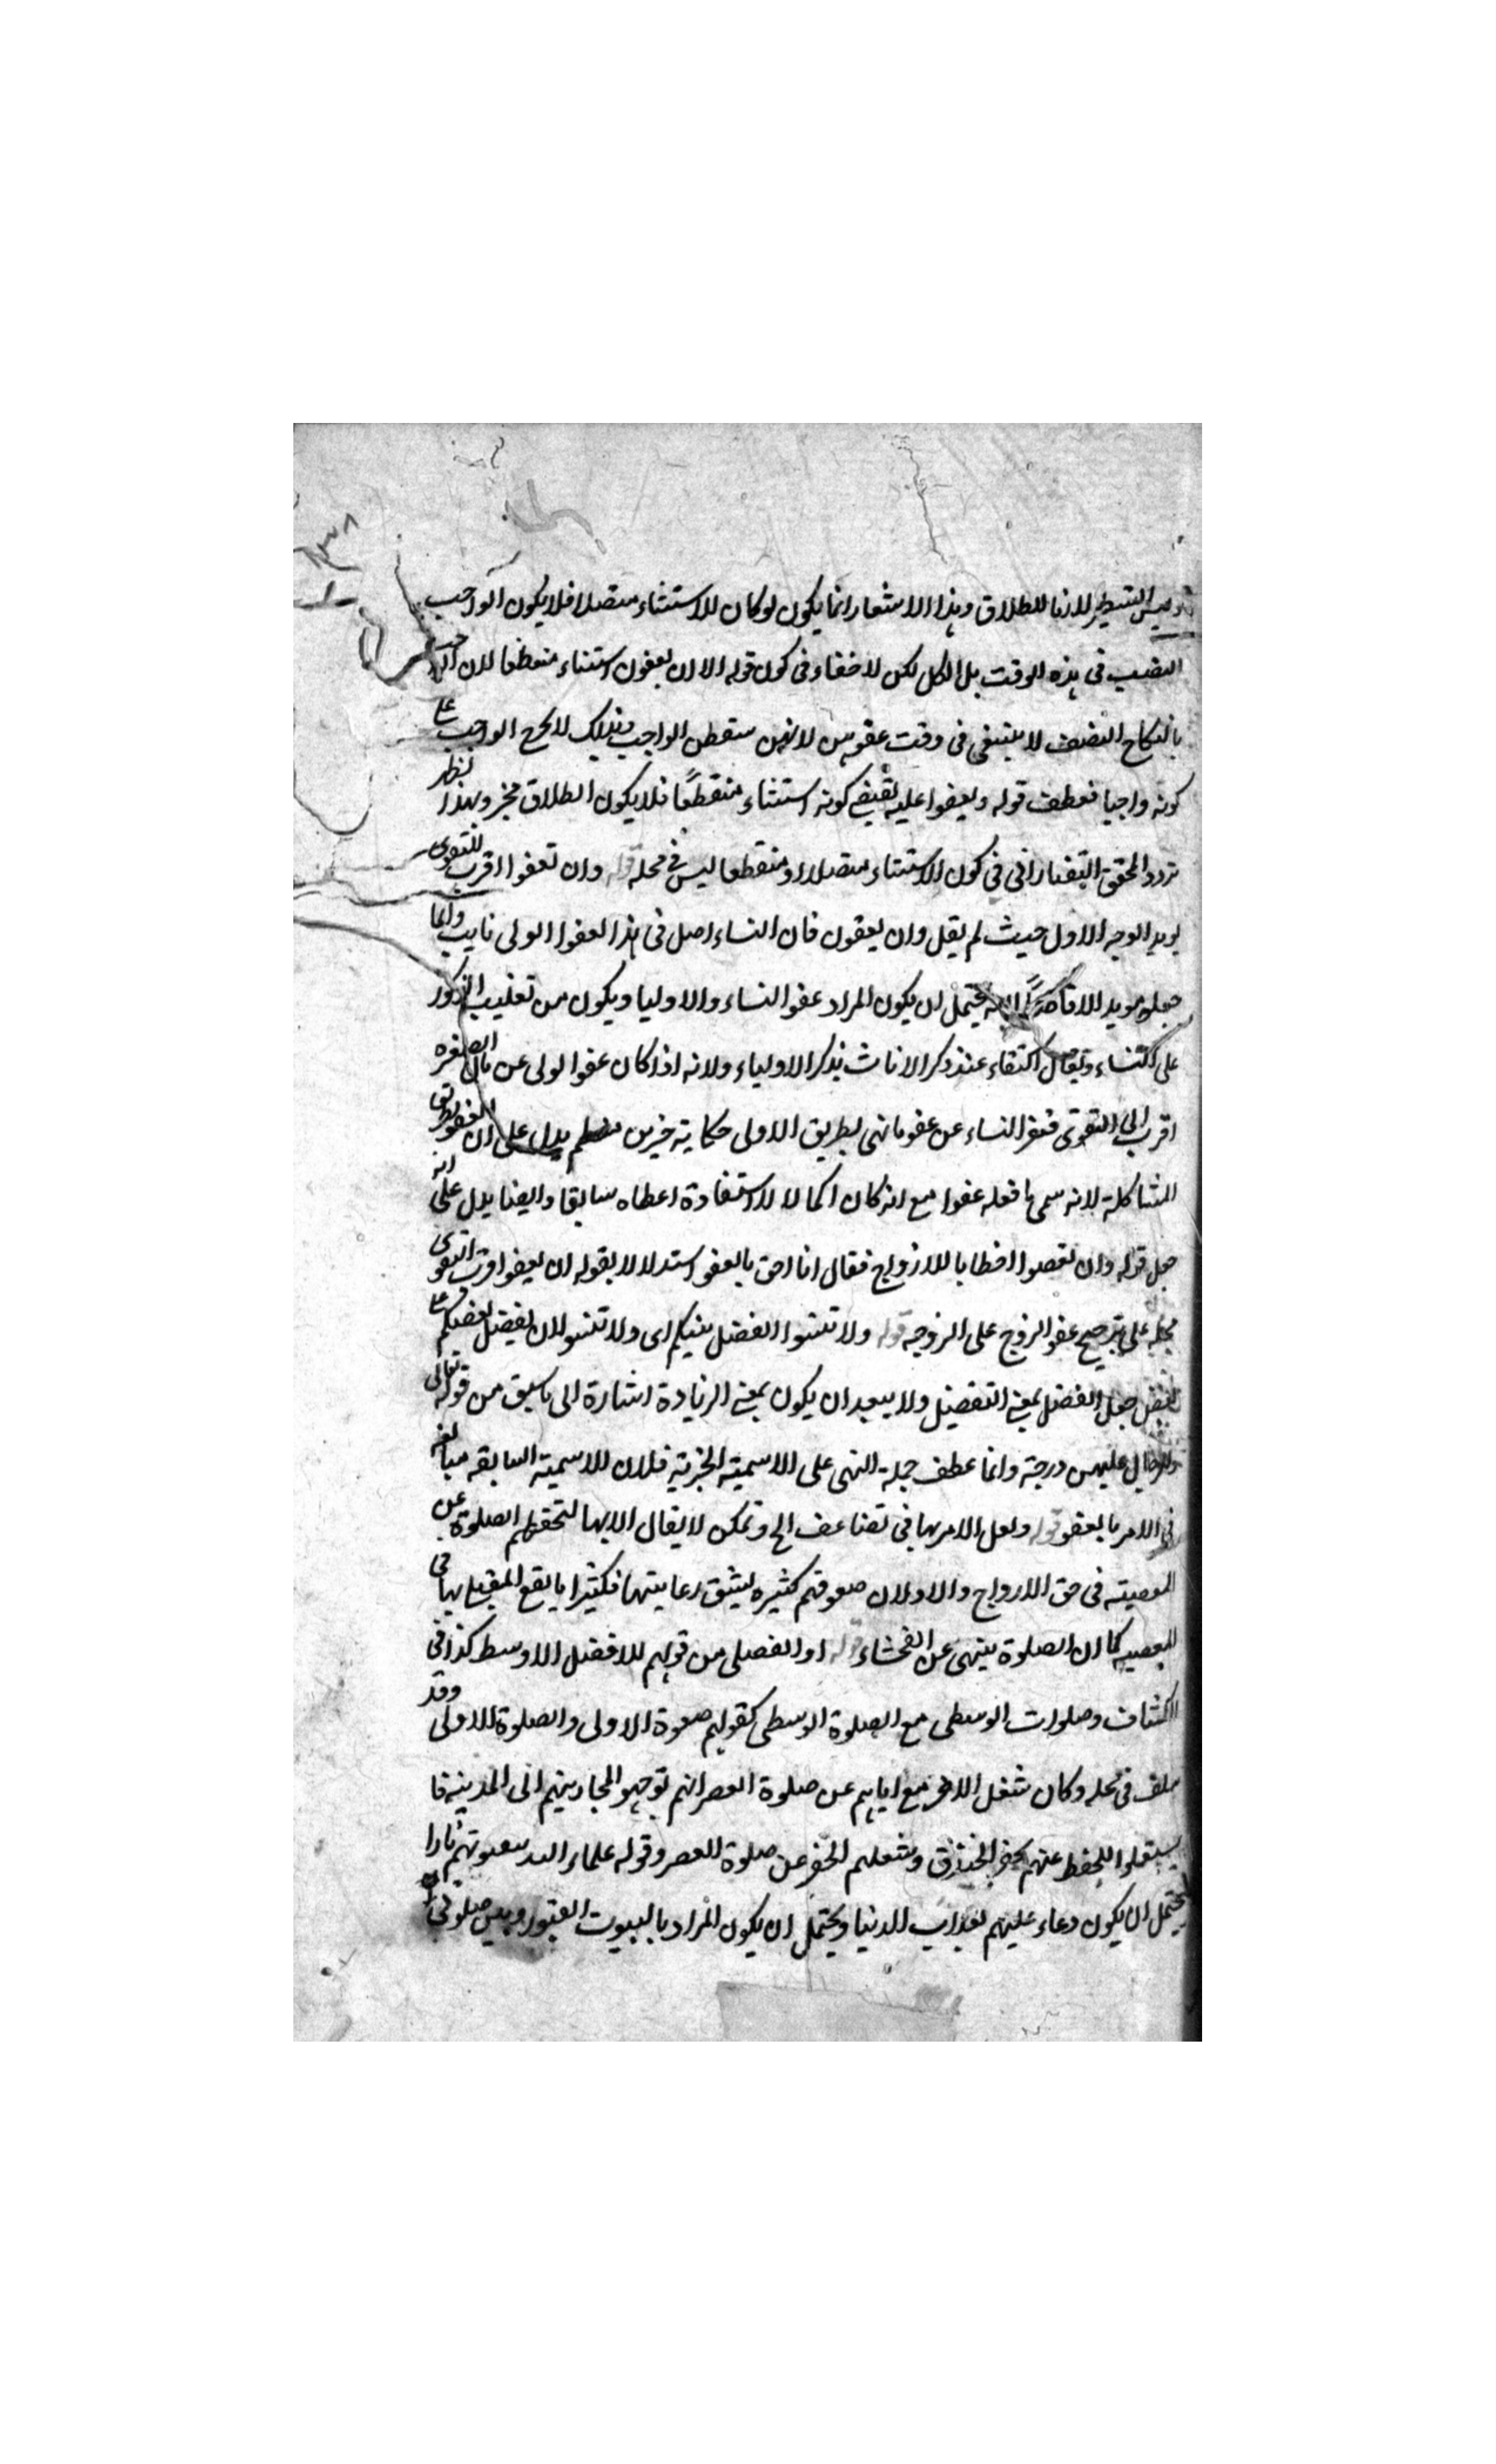 ١٣٨
وليس التشطير لازما للطلاق وهذا الاشعار انما يكون لو كان للاستثناء متصلا فلا يكون الواجب
النصيب فى هذه الوقت بل الكل لكن لا خفاء فى كون قوله الا ان يعفون استثناء منقطعا لان الواجب
بالنكاح النصف لا ينتفى فى وقت عفوهن لانهن سقطن الواجب وبذلك لا يخرج الواجب عن
كونه واجبا فعطف قوله ويعفوا عليه يقتضى كونه استثناء منقطعًا فلا يكون الطلاق مخير وبهذا ظهر
تردد المحقق التفتازانى فى كون الاستثناء متصلا او منقطعا ليس فى محله قوله وان تعفوا اقرب للتقوى
يويد الوجه الاول حيث لم يقل وان يعفون فان النساء اصل فى هذا العفو والولى نايب وانما
جعله مويدا لا يحتمل ان يكون المراد عفو النساء والاوليا ويكون من تغليب الذكور
على النساء ويقال اكتفاء عند ذكر الاناث بذكر الاولياء ولانه اذا كان عفو الولى عن مال الصغيره
اقرب الى التقوى فعفو النساء عن عفو مالهن بطريق الاولى حكاية جبير بن مطعم يدل على ان العفو بطريق
المشاكلة لانه سمى ما فعله عفوا مع انه كان اكمالا لاستفادة اعطاه سابقا وايضا يدل على انه
جعل قوله وان تعفوا خطابا للازواج فقال انا احق بالعفو استدلالا بقوله ان يعفوا اقرب للتقوى
على ترجيح عفو الزوج على الزوجه قوله ولا تنسوا الفضل بينكم اى ولا تنسوا ان يفضل بعضكم على
بعض جعل الفضل بمعنى التفضيل ولا يبعد ان يكون بمعنى الزيادة اشارة الى ما سبق من قوله تعالى
وللرجال عليهن درجة وانما عطف جملة النهى على الاسمية الخبرية فلان للاسمية السابقه مبالغه
فى الامر بالعفو قوله ولعل الامر بها فى تضاعيف الخ ويمكن لا يقال الامر بها لتحفظهم الصلوة عن
المعصية فى حق الازواج والاولاد حقوقهم كثيره يشق رعايتهما فكثيرا ما يقع المقيم بها فى
المعصيه كما ان الصلوة ينهى عن الفحشاء قوله او الفضلى من قولهم للافضل الاوسط كذا فى
الكشاف وصلوات الوسطى مع الصلوة الوسطى كقولهم صلوة الاولى والصلوة الاولى وقد
سلف فى محله وكان شغل الاحزاب اياهم عن صلوة العصر انهم توجهوا لمحاربتهم الى المدينة فا
ستقبلوا للحفظ عنهم بحفر الخندق وشغلهم الحفر عن صلوة العصر وقوله علماء الله بيوتهم نارا
يحتمل ان يكون دعاء عليهم بعذاب الدنيا ويحتمل ان يكون المراد بالبيوت القبور